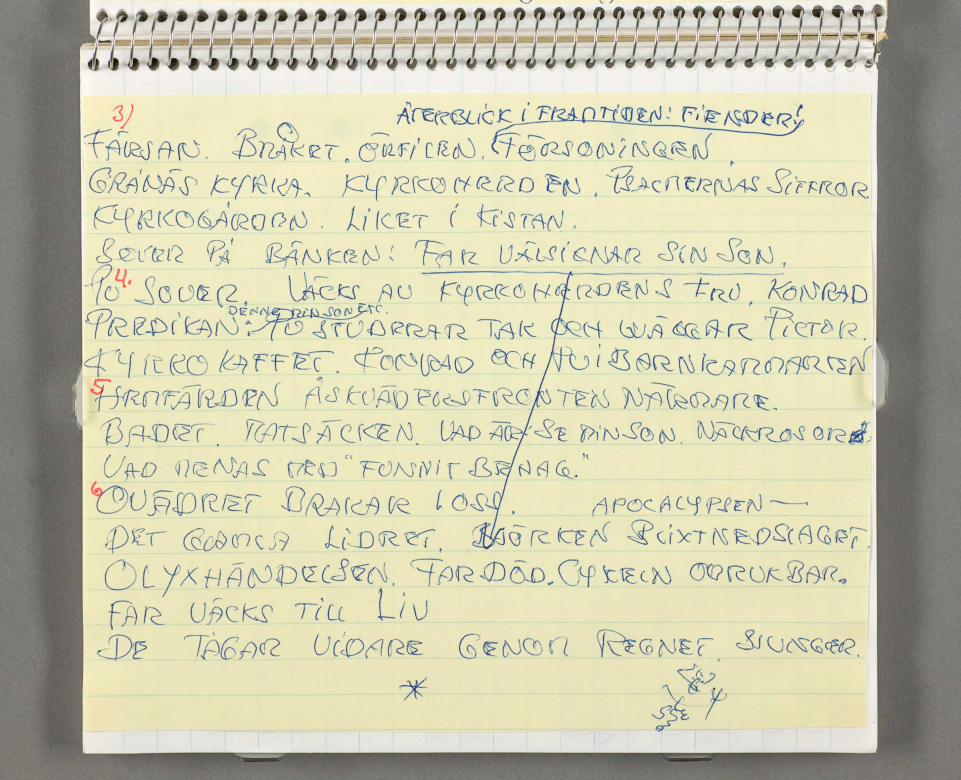 3) ÅTERBLICK I FRAMTIDEN: FIENDER!
FÄRJAN. BRÅKET. ÖRFILEN. FÖRSONINGEN.
GRÄNÄS KYRKA. KYRKOHERDEN. PSALMERNAS SIFFROR
KYRKOGÅRDEN. LIKET I KISTAN.
SOVER PÅ BÄNKEN: FAR VÄLSIGNAR SIN SON.
4. PU SOVER. VÄCKS AV KYRKOHERDENS FRU, KONRAD
DENNE MIN SON ETC.
PREDIKAN: PU STUDERAR TAK OCH VÄGGAR PICTOR.
KYRKOKAFFET. KONRAD OCH PU I BARNKAMMAREN
5 HEMFÄRDEN ÅSKVÄDERSFRONTEN NÄRMARE.
BADET. MATSÄCKEN. VAD ÄR: SE MIN SON. NÄCKROSOR
VAD MENAS MED "FUNNIT BEHAG."
6 OVÄDRET BRAKAR LOSS. APOCALYPSEN —
DET GAMLA LIDRET. MÖRKEN BLIXTNEDSLAGET.
OLYXHÄNDELSEN. FAR DÖD. CYKELN OBRUKBAR.
FAR VÄCKS TILL LIV
DE TÅGAR VIDARE GENOM REGNET. SJUNGER.